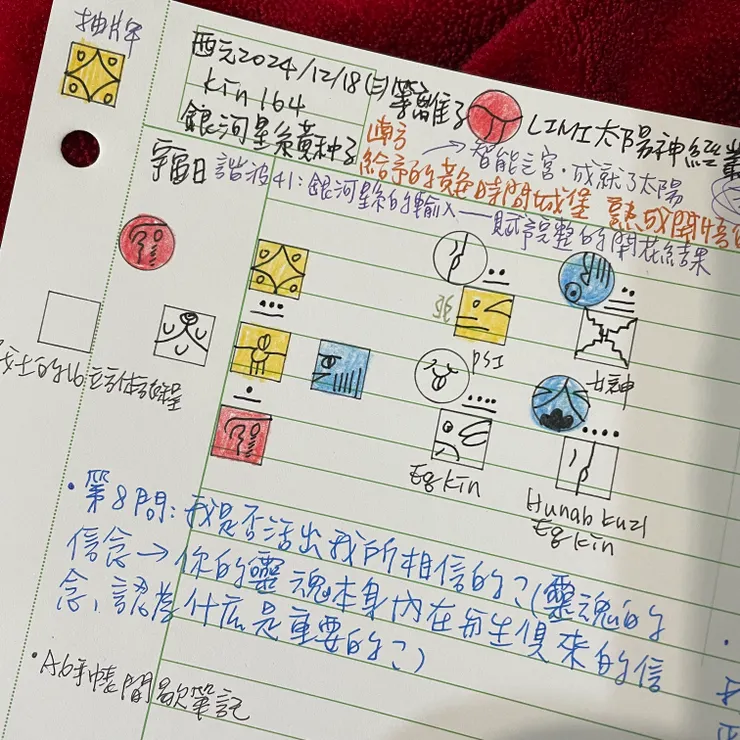 抽牌
西元2024/12/18(三)筆
kin 164
銀河星系黃種子
LIMI太陽神經叢
南方 智能之宮·成就了太陽
給予的黃色時間城堡 熟成開悟
宇宙日 諧波41:銀河星系的輸入——賦予完整的開花結果
PSI
女神
Eg kin
Hunab kuzi
Eg kin
·第8問:我是否活出我所相信的?(靈魂的
信念→你的靈魂本身內在與生俱來的信
念、認為什麼是重要的?)
·A6手帳閱歇筆記